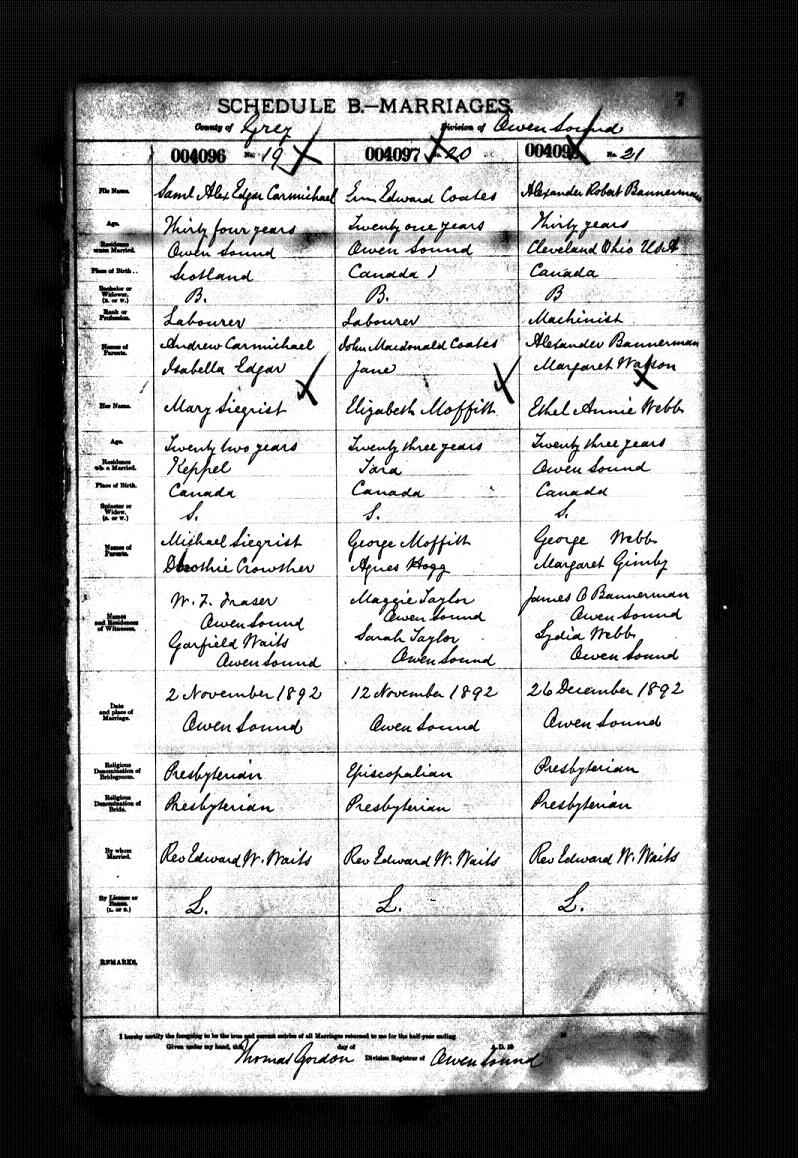 7
SCHEDULE B.—MARRIAGES.
County of Grey Division of Owen Sound
004096 No. 19 004097 20 00409 No. 21
His Name. Saml Alex Edgar Carmichael Edward Coates Alexander Robert Bannerman
Age. Thirty four years Twenty one years Thirty years
Residence when Married. Owen Sound Owen Sound Cleveland Ohio USA
Place of Birth.. Scotland Canada Canada
Bachelor or Widower. (B. or W.) B. B. B
Rank or Profession. Labourer Labourer Machinist
Names of Parents. Andrew Carmichael John Macdonald Coates Alexander Bannerman
Isabella Edgar Jane Margaret Watson
Her Name. Mary Siegrist Elizabeth Moffitt Ethel Annie Webb
Age. Twenty two years Twenty three years Twenty three years
Residence when Married. Keppel Tara Owen Sound
Place of Birth. Canada Canada Canada
Spinster or Widow. (S. or W.) S. S. S.
Names of Parents. Michael Siegrist George Moffitt George Webb
Dorothie Crowther Agnes Hogg Margaret Gimby
Names and Residences of Witnesses. W. F. Fraser Maggie Taylor James A Bannerman
Owen Sound Owen Sound Owen Sound
Garfield Waits Sarah Taylor Lydia Webb
Owen Sound Owen Sound Owen Sound
Date and place of Marriage. 2 November 1892 12 November 1892 26 December 1892
Owen Sound Owen Sound Owen Sound
Religious Denomination of Bridegroom. Presbyterian Episcopalian Presbyterian
Religious Denomination of Bride. Presbyterian Presbyterian Presbyterian
By whom Married. Rev Edward W. Waits Rev Edward W. Waits Rev Edward W. Waits
By License or Banns. (L. or B.) L. L. L.
REMARKS.
I hereby certify the foregoing to be the true and correct entries of all Marriages returned to me for the half-year ending 18
Given under my hand, this day of A.D. 18
Thomas Gordon Division Registrar of Owen Sound